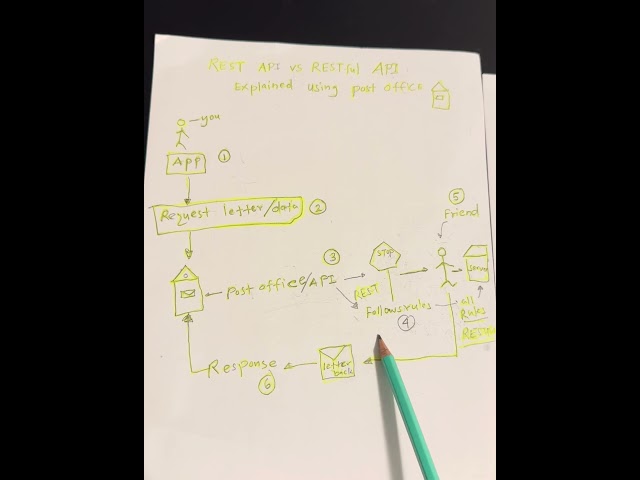 REST API vs RESTful API.
Explained using post office
you
App
1
Request letter/data
2
5
Friend
3
STOP
Post office/API
REST
Follows rules
4
all
Rules
Response
6
letter
back